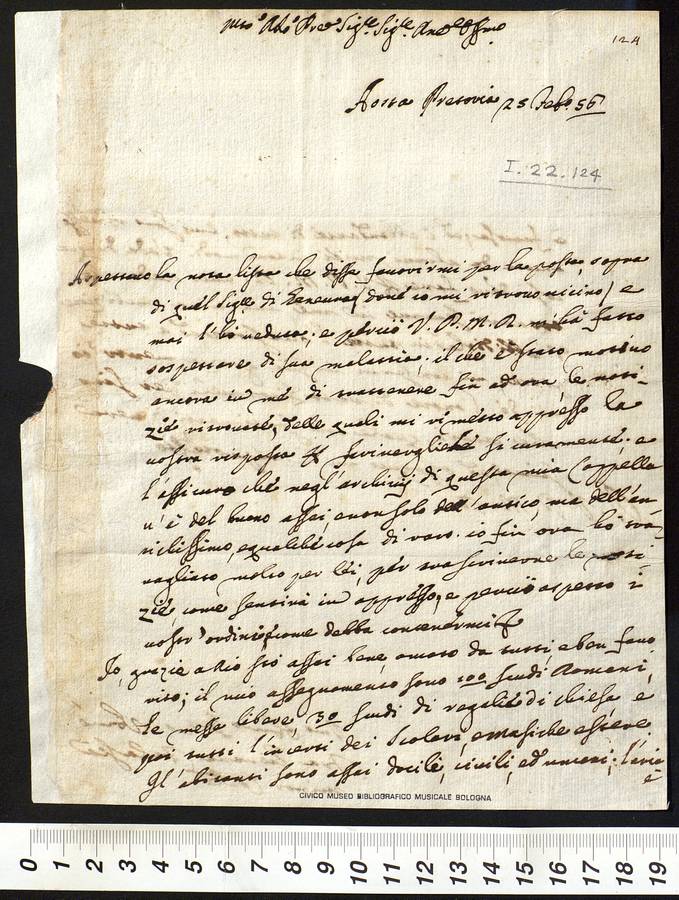 124
Aosta Pretoria 25 Feb.º 56
I. 22. 124
Aspettavo la nota lista che disse favorirmi per la posta, sopra
di quel Sig.e di (dove io mi ritrovo vicino) e
mai l'ho veduta; e perciò V. P. M. R. mi hà fatto
sospettare di sua malattia; il che è stato motivo
ancora in me di trattenere fin ad ora le noti-
zie ritrovate, delle quali mi rimetto appresso la
vostra risposta sicuramente; e
l'assicuro che negl'archivij di questa mia Cappella
v'è del buono assai, e non solo dell'antico, ma dell'an-
tichissimo, e qualche cosa di raro. io fin ora hò tra-
vagliato molto per lei, per trascrivere le noti-
zie, come sentirà in appresso, e perciò aspetto i
vostr'ordini come debba contenermi
Io, grazie a Dio stò assai bene, amato da tutti e ben favo-
rito; il mio assegnamento sono 100 scudi Romani,
le messe libere, 30 scudi di regali di chiesa e
poi tutti l'incerti dei Scolari, e Musiche estere.
Gl'abitanti sono assai docili, civili, ed umani; l'aria
è
CIVICO MUSEO BIBLIOGRAFICO MUSICALE BOLOGNA
0 1 2 3 4 5 6 7 8 9 10 11 12 13 14 15 16 17 18 19